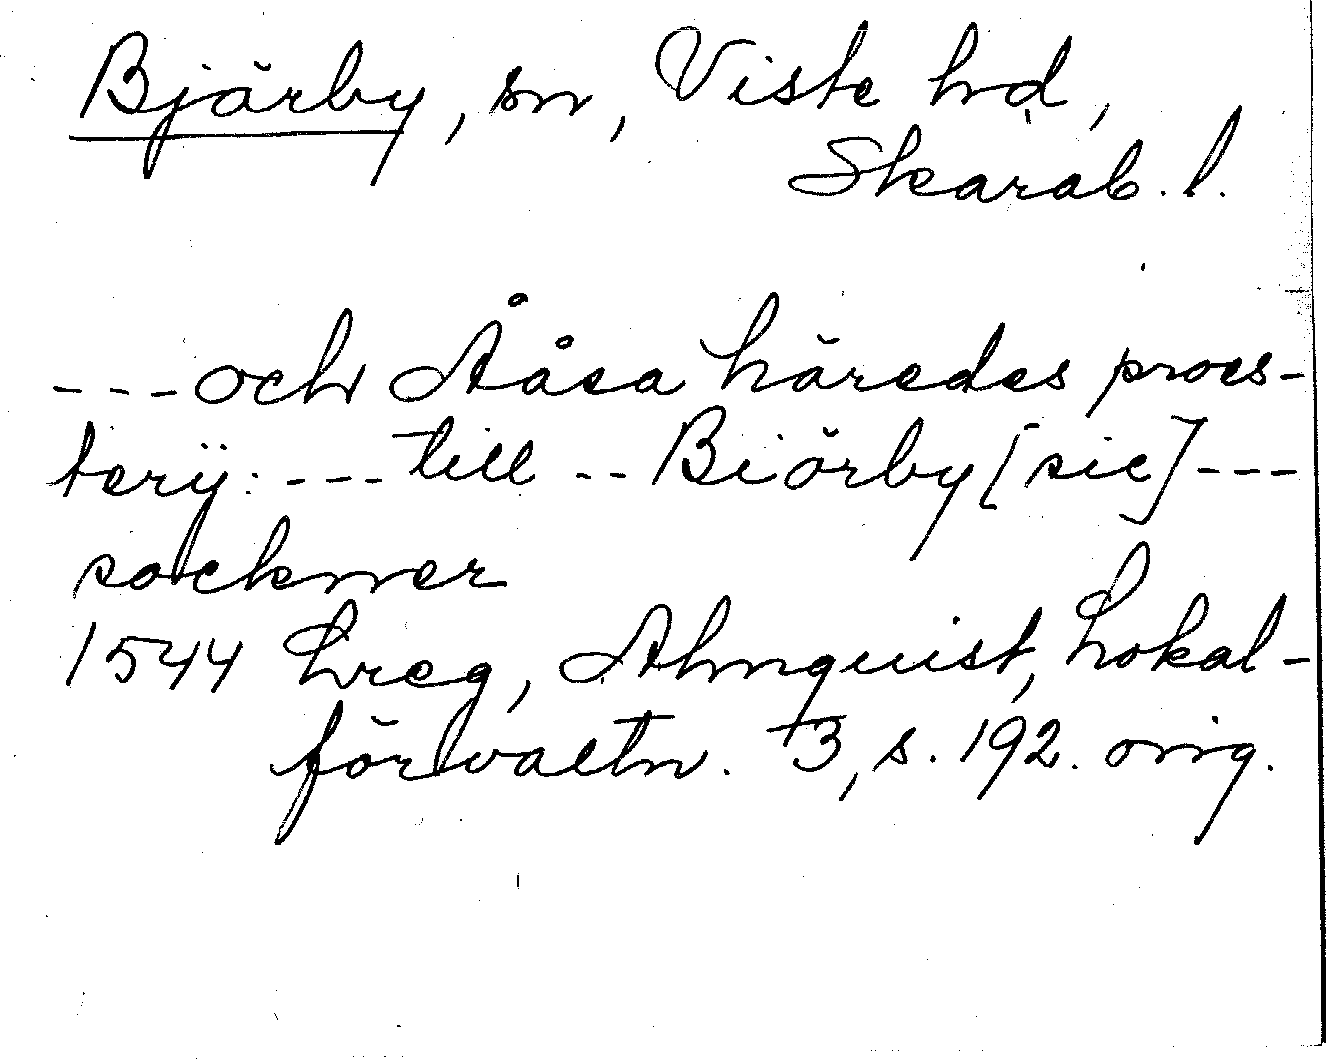 Bjärby, sn, Viste hd,
Skarab. l.
---och Åsa häredes proes-
terij: ---till -- Biörby [sic]---
sockner
1544 hreg, Almquist, Lokal-
förvaltn. 3, s. 192. orig.